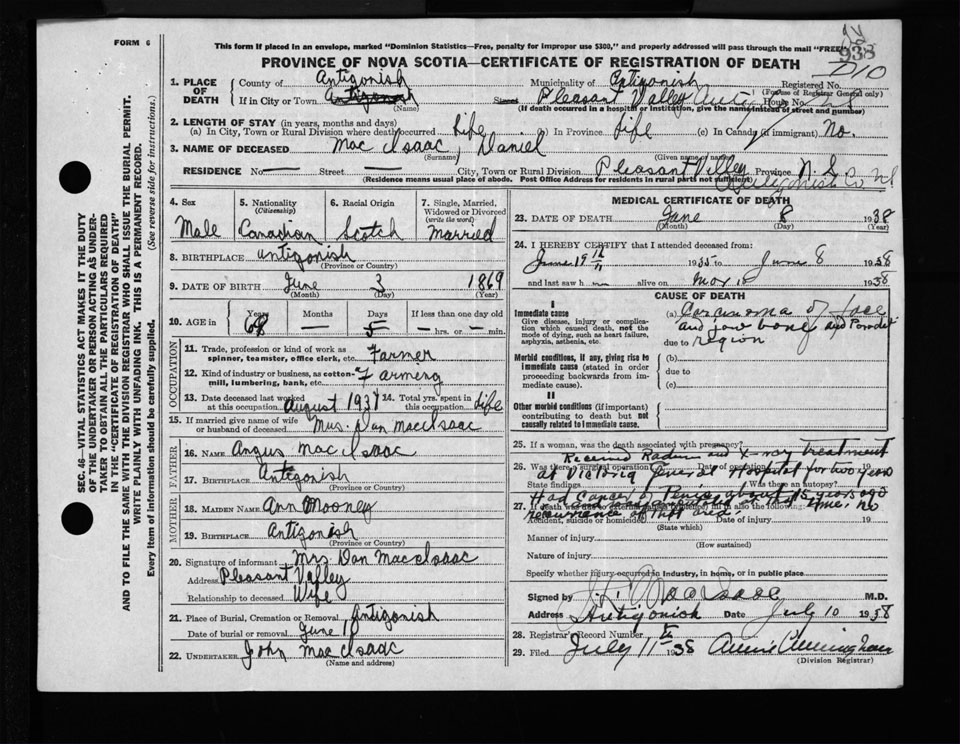 FORM 6
This form if placed in an envelope, marked "Dominion Statistics—Free, penalty for improper use $300," and properly addressed will pass through the mail "FREE"
938
D10
PROVINCE OF NOVA SCOTIA—CERTIFICATE OF REGISTRATION OF DEATH
1. PLACE OF DEATH
County of Antigonish Municipality of Antigonish Registered No.
(For use of Registrar General only)
If in City or Town Antigonish Street Pleasant Valley House No.
(Name) (If death occurred in a hospital or institution, give the name instead of street and number)
2. LENGTH OF STAY (in years, months and days)
(a) In City, Town or Rural Division where death occurred Life (b) In Province Life (c) In Canada (if immigrant) No.
3. NAME OF DECEASED Mac Isaac, Daniel
(Surname) (Given name or names)
RESIDENCE No — Street — City, Town or Rural Division Pleasant Valley Province N. S.
(Residence means usual place of abode. Post Office Address for residents in rural parts not sufficient)
Antigonish Co NS
4. Sex Male
5. Nationality (Citizenship) Canadian
6. Racial Origin Scotch
7. Single, Married, Widowed or Divorced (write the word) Married
8. BIRTHPLACE Antigonish
(Province or Country)
9. DATE OF BIRTH June 3 1869
(Month) (Day) (Year)
10. AGE in Years 68 Months — Days 5 If less than one day old — hrs. or — min.
OCCUPATION
11. Trade, profession or kind of work as spinner, teamster, office clerk, etc. Farmer
12. Kind of industry or business, as cotton-mill, lumbering, bank, etc. Farmeng
13. Date deceased last worked at this occupation August 1937 14. Total yrs. spent in this occupation Life
15. If married give name of wife or husband of deceased Mrs. Dan MacIsaac
FATHER
16. NAME Angus Mac Isaac
17. BIRTHPLACE Antigonish
MOTHER
18. MAIDEN NAME Ann Mooney
19. BIRTHPLACE Antigonish
(Province or Country)
20. Signature of informant Mrs Dan MacIsaac
Address Pleasant Valley
Relationship to deceased Wife
21. Place of Burial, Cremation or Removal Antigonish
Date of burial or removal June
22. UNDERTAKER John MacIsaac
(Name and address)
MEDICAL CERTIFICATE OF DEATH
23. DATE OF DEATH June 8 1938
(Month) (Day) (Year)
24. I HEREBY CERTIFY that I attended deceased from:
June 19 to June 8 1938
and last saw h alive on 1938
CAUSE OF DEATH
I
Immediate cause
Give disease, injury or complication which caused death, not the mode of dying, such as heart failure, asphyxia, asthenia, etc.
(a) Carcinoma of face
and jaw bone and Parotid
due to region
Morbid conditions, if any, giving rise to immediate cause (stated in order proceeding backwards from immediate cause).
(b)
due to
(c)
II
Other morbid conditions (if important) contributing to death but not causally related to immediate cause.
25. If a woman, was the death associated with pregnancy?
Received Radium and X-ray treatment
26. Was there a surgical operation? Date of operation 19
at Victoria General Hospital for two years
State findings Was there an autopsy?
Had Cancer of Penis about 15 years ago
27. If death was due to external causes (violence) fill in also the following:
recurrence of that area. no
Accident, suicide or homicide? Date of injury 19
(State which)
Manner of injury
(How sustained)
Nature of injury
Specify whether injury occurred in industry, in home, or in public place
Signed by MacIsaac M.D.
Address Antigonish Date July 10 1938
28. Registrar's Record Number 5
29. Filed July 11 1938 Annie Cunningham
(Division Registrar)
SEC. 46—VITAL STATISTICS ACT MAKES IT THE DUTY OF THE UNDERTAKER OR PERSON ACTING AS UNDERTAKER TO OBTAIN ALL THE PARTICULARS REQUIRED IN THE "CERTIFICATE OF REGISTRATION OF DEATH" AND TO FILE THE SAME WITH THE DIVISION REGISTRAR WHO SHALL ISSUE THE BURIAL PERMIT.
WRITE PLAINLY WITH UNFADING INK. THIS IS A PERMANENT RECORD.
Every item of information should be carefully supplied. (See reverse side for instructions.)